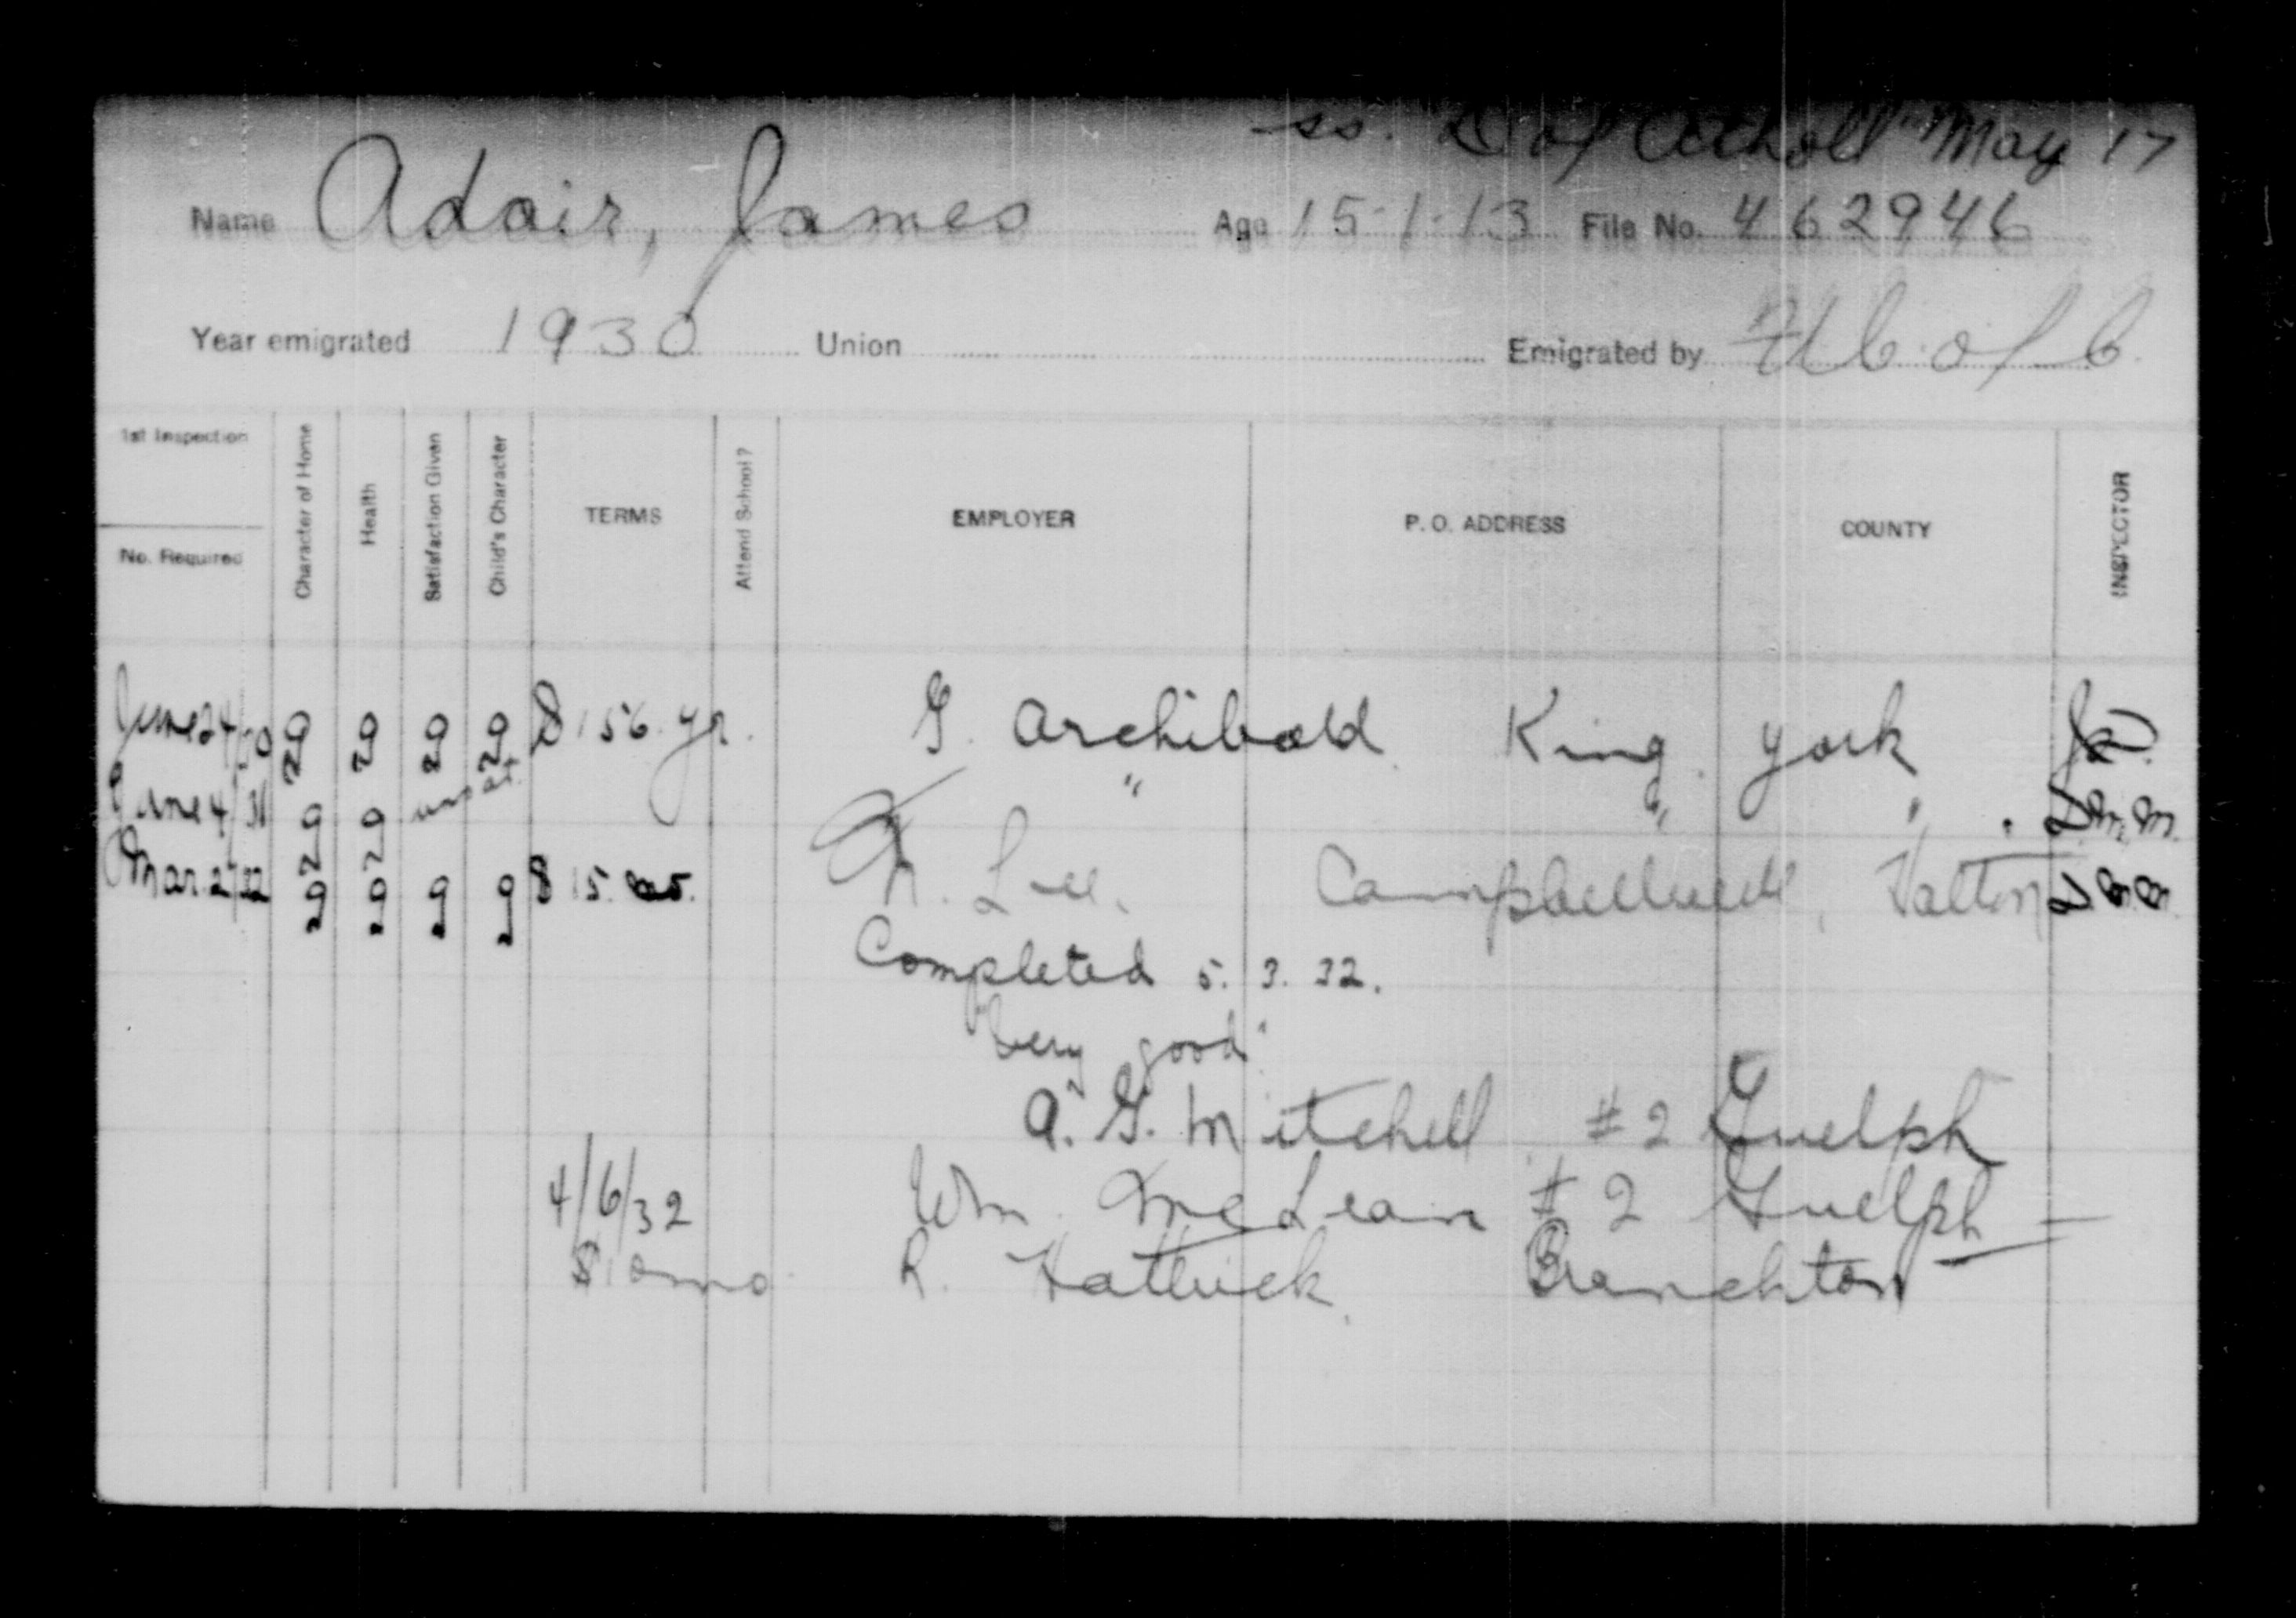 ss. "D of Atholl" May 17
Name Adair, James Age 15-1-13 File No. 462946
Year emigrated 1930 Union Emigrated by U C of C.
1st Inspection
No. Required
Character of Home
Health
Satisfaction Given
Child's Character
TERMS
Attend School?
EMPLOYER
P. O. ADDRESS
COUNTY
INSPECTOR
June 24/30 g g g g $156. yr. G. Archibald King York
June 4/31 g g unsat. " " "
Mar. 2/32 g g g g $15. N. Lee. Campbellville, Halton
Completed 5. 3. 32.
"Very good"
A. G. Mitchell #2 Guelph
4/6/32 Wm. McLean #2 Guelph
$10 mo R. Branchton